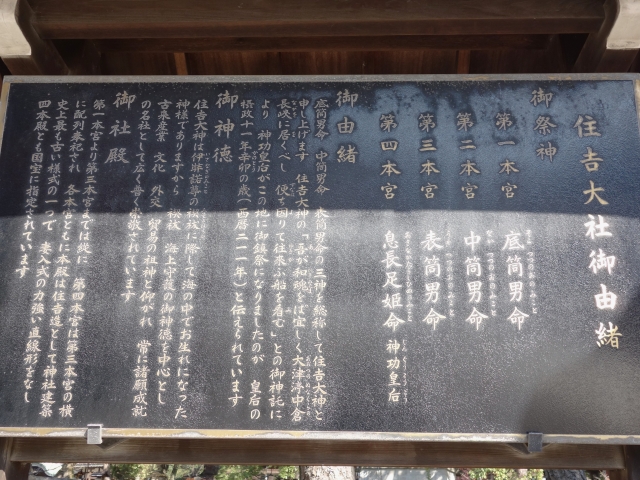 住吉大社御由緒
御祭神
第一本宮 底筒男命
第二本宮 中筒男命
第三本宮 表筒男命
第四本宮 息長足姫命 神功皇后
御由緒
底筒男命 中筒男命 表筒男命の三神を総称して住吉大神と
申し上げます 住吉大神の「吾が和魂をば宜しく大津渟中倉
長峡に居くべし 便ち因りて往来ふ船を看む」との御神託に
より 神功皇后がこの地に御鎮祭になりましたのが 皇后の
摂政十一年辛卯の歳(西暦二一一年)と伝えられています
御神徳
住吉大神は伊弉諾尊の禊祓に際して海の中でお生れになった
神様でありますから 禊祓 海上守護の御神徳を中心とし
古来産業 文化 外交 貿易の祖神と仰がれ 常に諸願成就
の名社として広く普く崇敬されています
御社殿
第一本宮より第三本宮までは縦に 第四本宮は第三本宮の横
に配列奉祀され 各本宮ともに本殿は住吉造として神社建築
史上最も古い様式の一つで 妻入式の力強い直線形をなし
四本殿とも国宝に指定されています